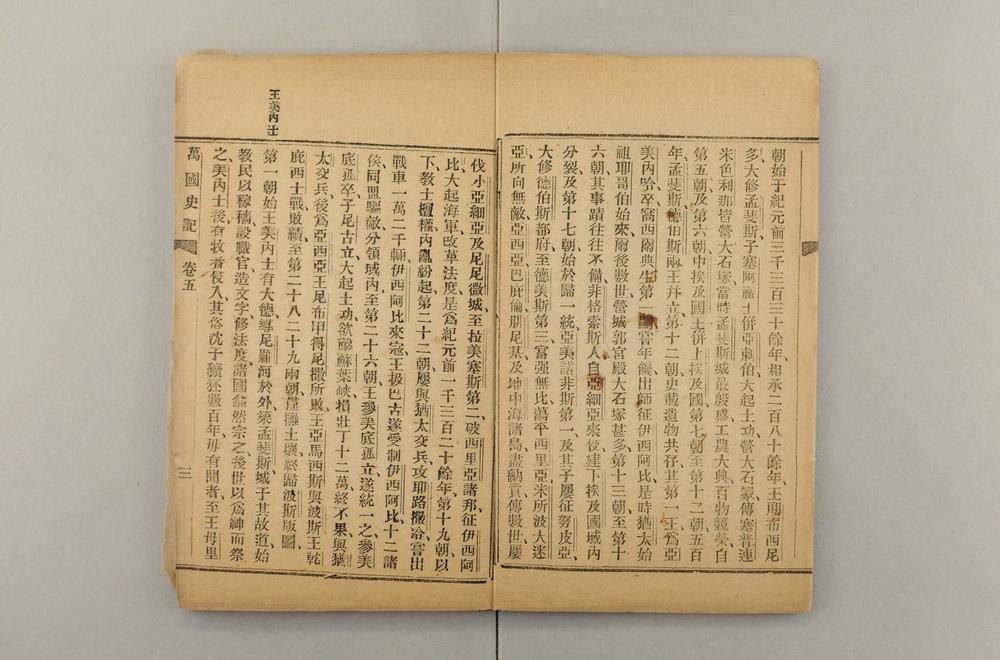 朝始于紀元前三千三百三十餘年相承二百八十餘年王閟布西尼
多大修孟斐斯子塞阿勝士併亞剌伯大起土功營大石冢傳塞普連
米色利那皆營大石塚當時孟斐斯城最殷盛工農大興百物競美自
第五朝及第六朝中埃及國王併上埃及國第七朝至第十二朝五百
年孟斐斯德伯斯兩王幷立第十二朝史載遺物共存其第一王爲亞
美內哈卒窩西爾典生第 嘗年饑出師征伊西阿比是時猶太始
祖耶哥伯始來爾後數世營城郭宮殿大石塚甚多第十三朝至第十
六朝其事蹟往往不備非格索斯人自亞細亞來侵建下埃及國域內
分裂及第十七朝始於歸一統亞美諾非斯第一及其子屢征努皮亞
大修德伯斯都府至德美斯第三富强無比蕩平西里亞米所波大迷
亞所向無敵亞西亞巴庇倫朋尼基及地中海諸島盡納貢傳數世屢
伐小亞細亞及尼尼微城至拉美塞斯第二破西里亞諸邦征伊西阿
比大起海軍改革法度是爲紀元前一千三百二十餘年第十九朝以
下教士擅權內亂紛起第二十二朝屢與猶太交兵攻耶路撒冷嘗出
戰車一萬二千輛伊西阿比來寇王扱巴古遂受制伊西阿比十二諸
侯同盟驅敵分領域內至第二十六朝王參美底孤立遂統一之參美
底孤卒子尼古立大起土功欲鑿蘇葉峽損壯丁十二萬終不果與猶
太交兵後爲亞西亞王尼布甲得尼撒所敗王亞馬西斯與波斯王乾
庇西士戰敗績至第二十八二十九兩朝僅擁土壤終歸波斯版圖
王美內士
第一朝始王美內士有大德導尼羅河於外築孟斐斯城于其故道始
教民以稼穡設職官造文字修法度諸國翕然宗之後世以爲神而祭
之美內士後有牧者侵入其俗沈于獷狉數百年毋有聞者至王母里
萬國史記
卷五
三